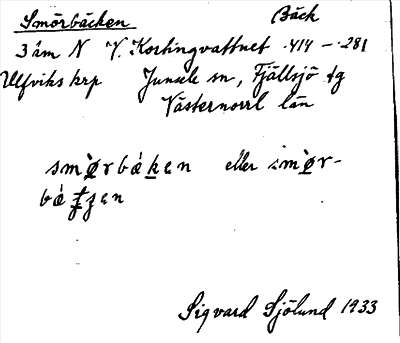 Smörbäcken Bäck
3 åm N V. Kortingvattnet 414 - 281
Ulfviks krp Junsele sn, Fjällsjö tg
Västernorrl län
smørbækɛn eller smør-
bæʈʂɛn
Sigvard Sjölund 1933